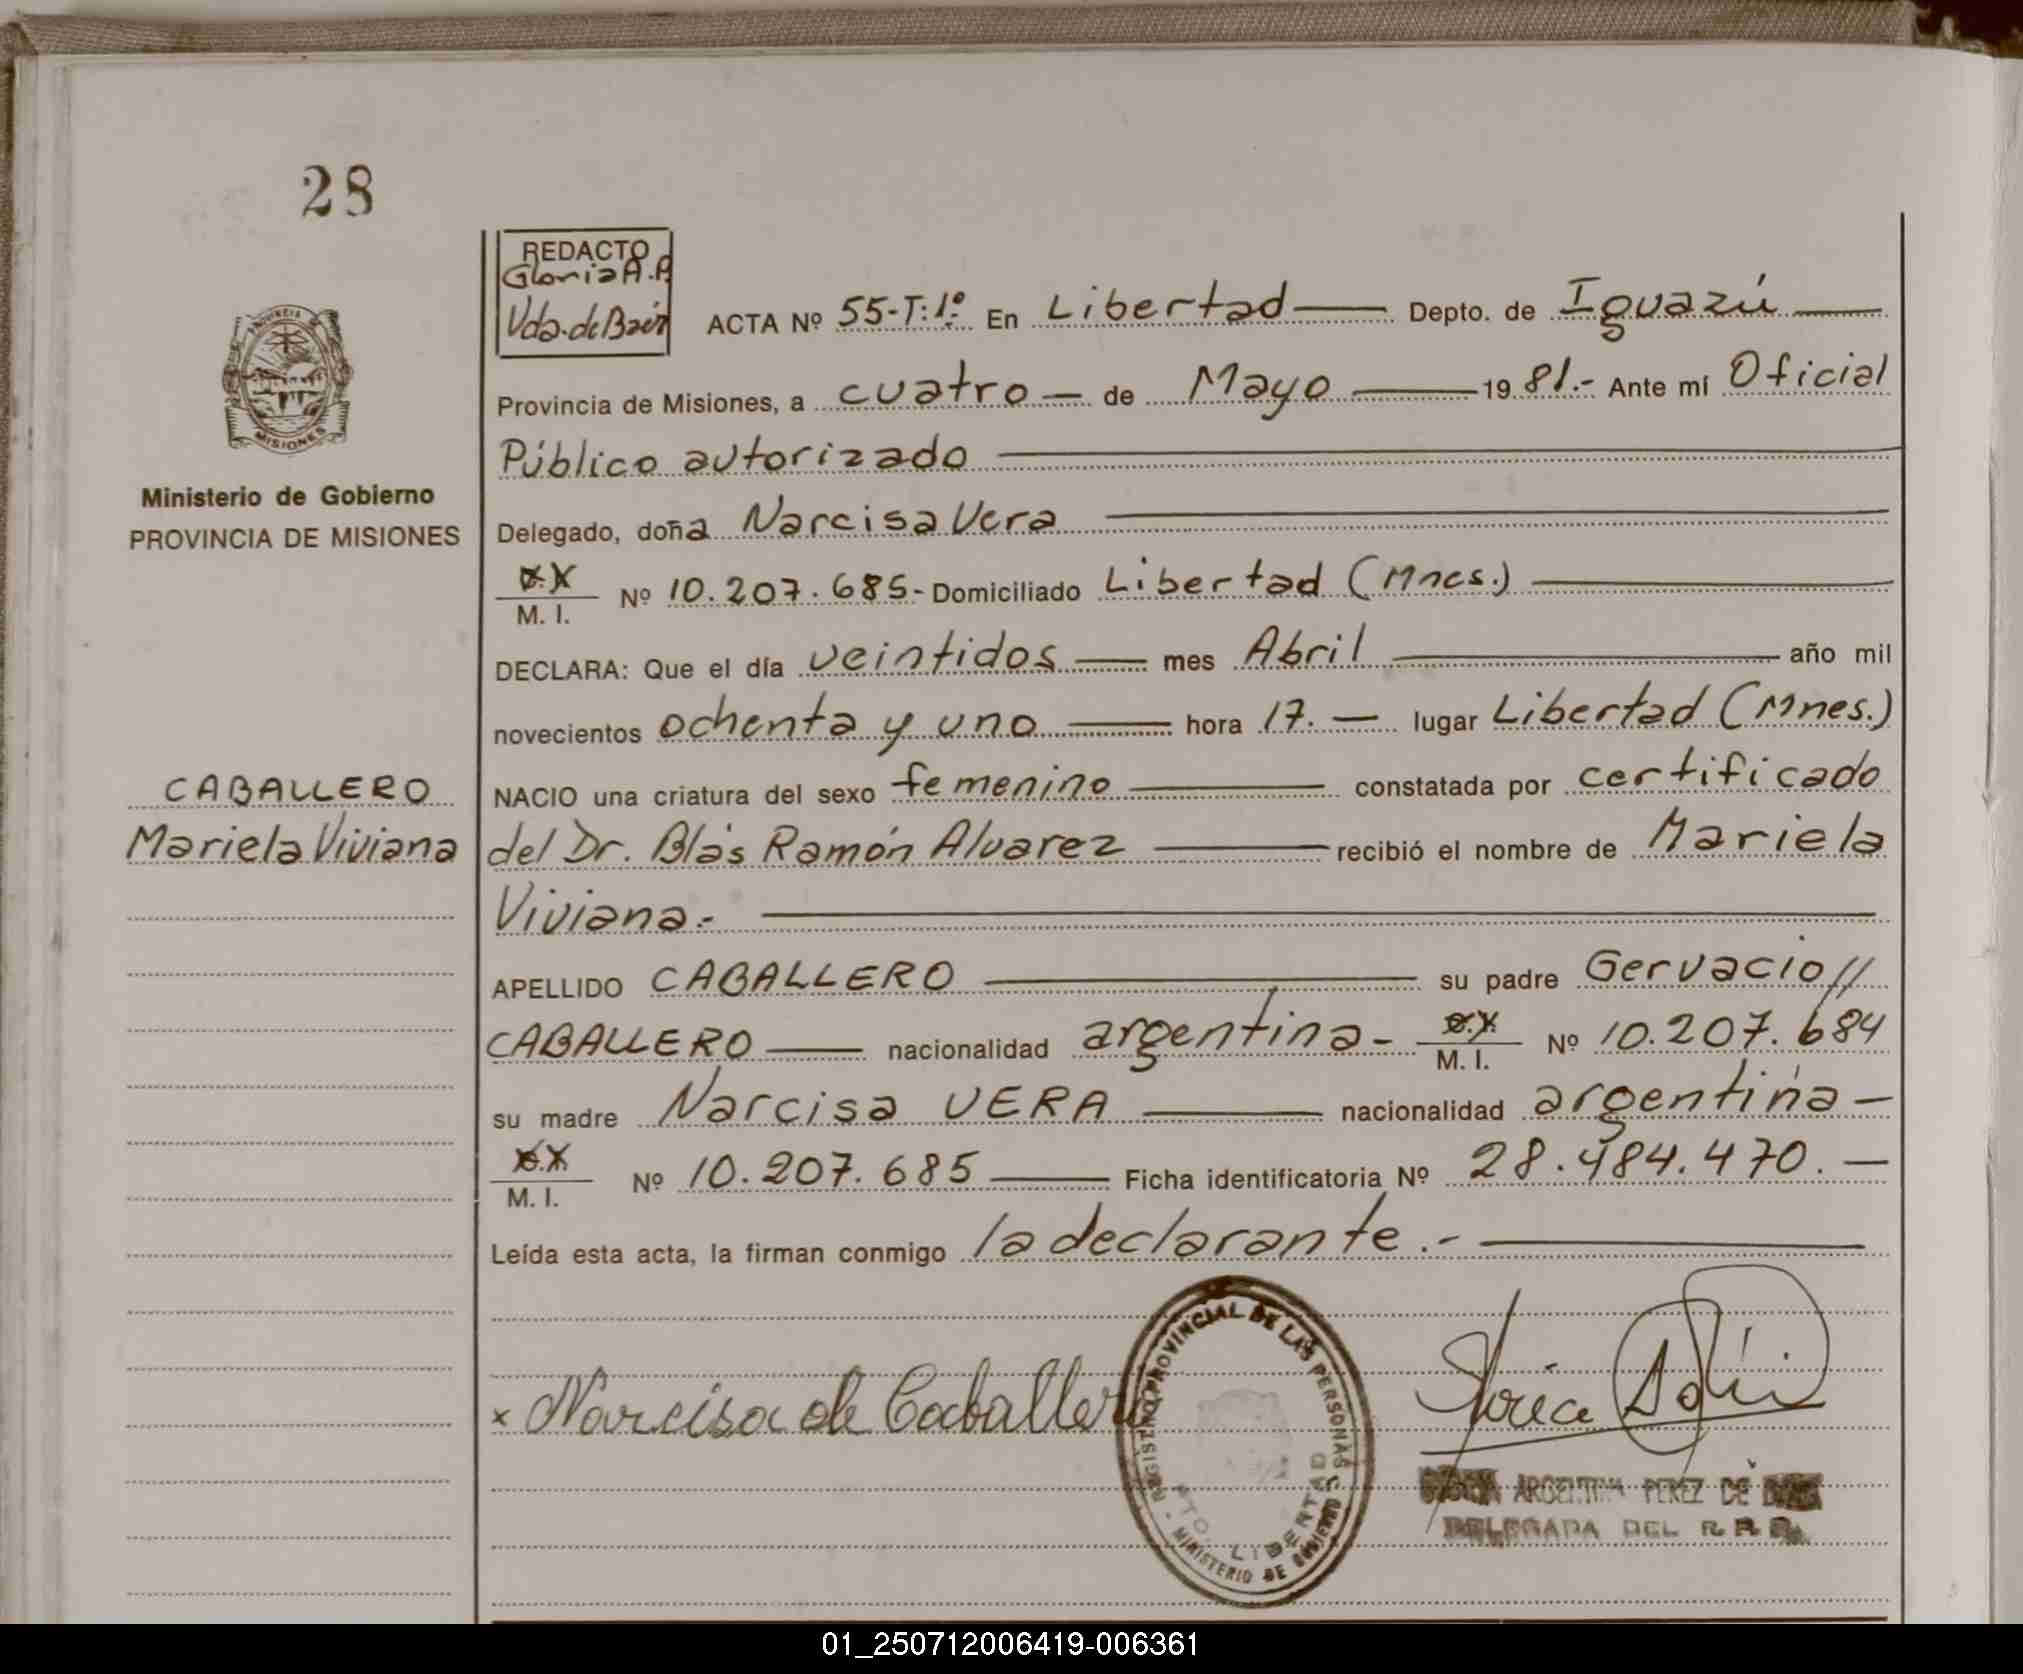 28
REDACTO
Gloria A. P.
Vda. de Baez
ACTA Nº 55-T:1º. En Libertad Depto. de Iguazú
Provincia de Misiones, a cuatro de Mayo 1981.- Ante mí Oficial
Público autorizado
Delegado, doña Narcisa Vera
M. I. Nº 10.207.685- Domiciliado Libertad (Mnes.)
DECLARA: Que el día veintidos mes Abril año mil
novecientos ochenta y uno hora 17. lugar Libertad (Mnes.)
NACIO una criatura del sexo femenino constatada por certificado
del Dr. Blás Ramón Alvarez recibió el nombre de Mariela
Viviana.-
APELLIDO CABALLERO su padre Gervacio//
CABALLERO nacionalidad argentina- M. I. Nº 10.207.684
su madre Narcisa VERA nacionalidad argentina-
M. I. Nº 10.207.685 Ficha identificatoria Nº 28.484.470.-
Leída esta acta, la firman conmigo la declarante.-
PROVINCIA
MISIONES
Ministerio de Gobierno
PROVINCIA DE MISIONES
CABALLERO
Mariela Viviana
x Narcisa de Caballero
REGISTRO PROVINCIAL DE LAS PERSONAS
LIBERTAD
MINISTERIO DE GOBIERNO
ARGENTINA PEREZ DE
DELEGADA DEL R.
01_250712006419-006361